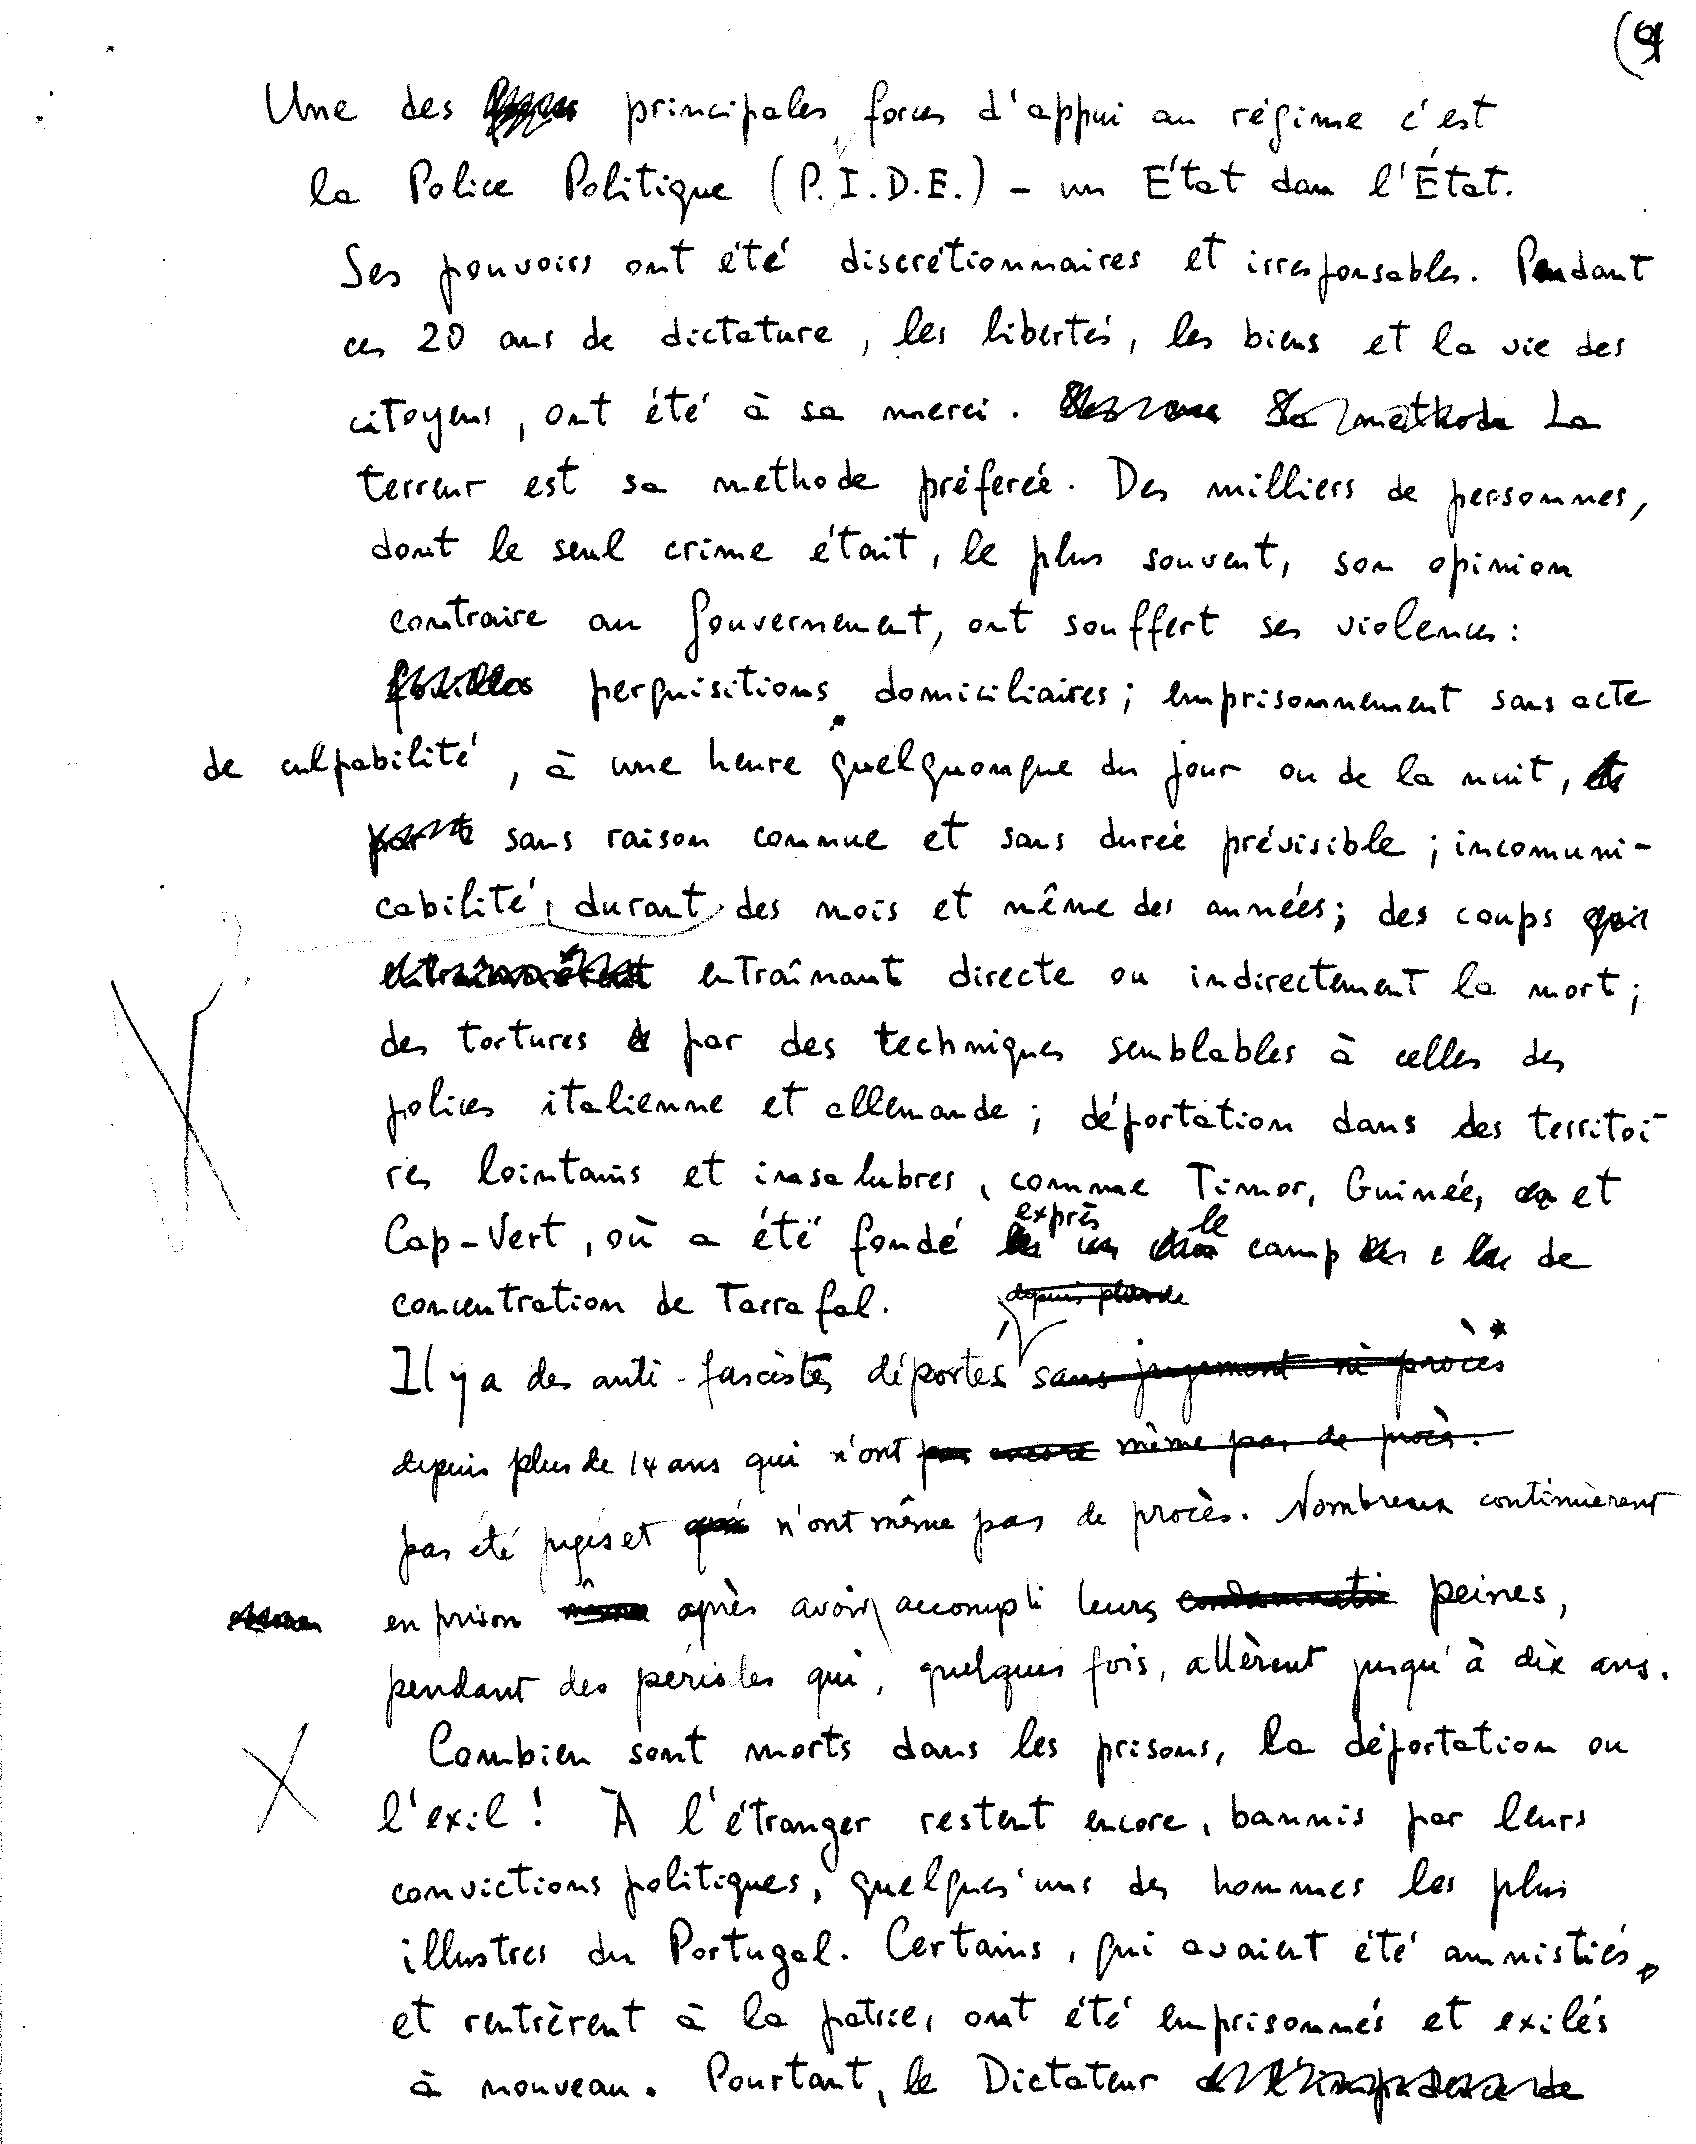 (9
Une des principales forces d'appui au régime c'est
la Police Politique (P.I.D.E.) - un État dans l'État.
Ses pouvoirs ont été discrétionnaires et irresponsables. Pendant
ces 20 ans de dictature, les libertés, les biens et la vie des
citoyens, ont été à sa merci. Sa méthode La
terreur est sa methode préfereé. Des milliers de personnes,
dont le seul crime était, le plus souvent, son opinion
contraire au Gouvernement, ont souffert ses violences:
fouilles perquisitions domiciliaires; emprisonnement sans acte
de culpabilité, à une heure quelquonque du jour ou de la nuit, et
sans raison connue et sans dureé prévisible; incomuni-
cabilité, durant des mois et même des années; des coups qui
entraînant directe ou indirectement la mort;
des tortures par des techniques semblables à celles des
polices italienne et allemande; déportation dans des territoi-
res lointains et insalubres, comme Timor, Guinée, et
exprès le
Cap-Vert, où a été fondé camp de
concentration de Tarrafal.
depuis plus de
Il y a des anti-fascistes déportés sans jugement ni procès
depuis plus de 14 ans qui n'ont pas encore même pas de procès.
pas été jugés et qui n'ont même pas de procès. Nombreux continuèrent
en prison même après avoir accompli leurs peines,
pendant des périodes qui, quelques fois, allèrent jusqu'à dix ans.
Combien sont morts dans les prisons, la déportation ou
l'exil! À l'étranger restent encore, bannis par leurs
convictions politiques, quelques'uns des hommes les plus
illustres du Portugal. Certains, qui avaient été amnistiés,
et rentrèrent à la patrie, ont été emprisonnés et exilés
à nouveau. Pourtant, le Dictateur a l'impudence de